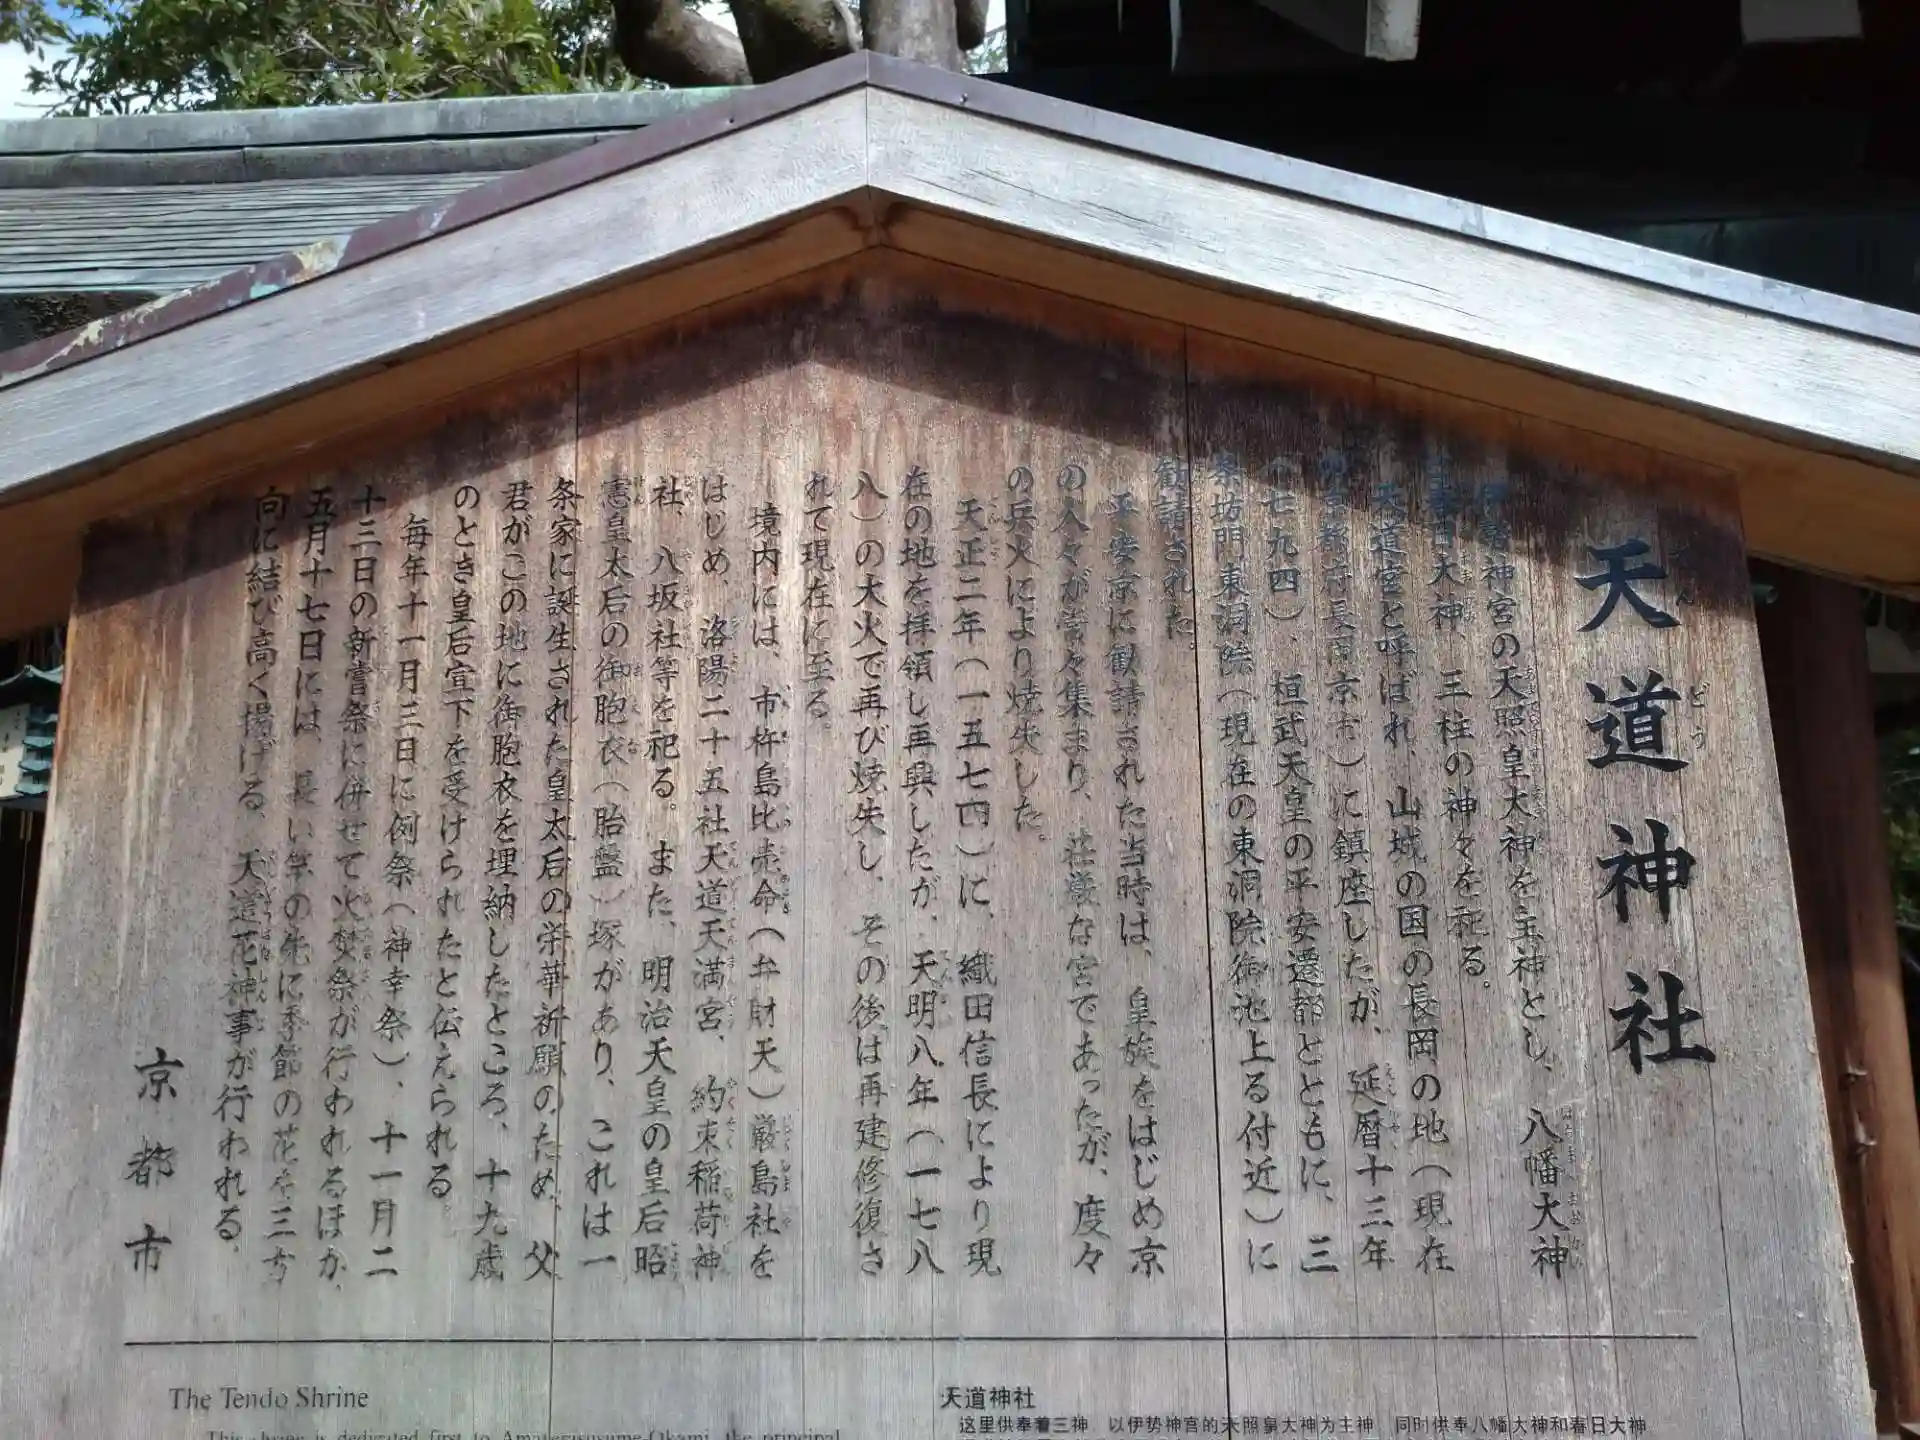 天道神社
伊勢神宮の天照皇大神を主神とし、八幡大神
春日大神、三柱の神々を祀る。
天道宮と呼ばれ、山城の国の長岡の地(現在
京都府長岡京市)に鎮座したが、延暦十三年
(七九四)、桓武天皇の平安遷都とともに、三
条坊門東洞院(現在の東洞院御池上る付近)に
勧請された。
平安京に勧請された当時は、皇族をはじめ京
の人々が常々集まり、荘厳な宮であったが、度々
の兵火により焼失した。
天正二年(一五七四)に、織田信長により現
在の地を拝領し再興したが、天明八年(一七八
八)の大火で再び焼失し、その後は再建修復さ
れて現在に至る。
境内には、市杵島比売命(弁財天)厳島社を
はじめ、洛陽二十五社天道天満宮、約束稲荷神
社、八坂社等を祀る。また、明治天皇の皇后昭
憲皇太后の御胞衣(胎盤)塚があり、これは一
条家に誕生された皇太后の栄華祈願のため、父
君がこの地に御胞衣を埋納したところ、十九歳
のとき皇后宣下を受けられたと伝えられる。
毎年十一月三日に例祭(神幸祭)、十一月二
十三日の新嘗祭に併せて火焚祭が行われるほか、
五月十七日には、長い竿の先に季節の花を三方
向に結び高く揚げる、天道花神事が行われる。
京都市
The Tendo Shrine
This shrine is dedicated first to Amaterisusume-Okami, the principal
天道神社
这里供奉着三神 以伊势神宫的天照皇大神为主神 同时供奉八幡大神和春日大神